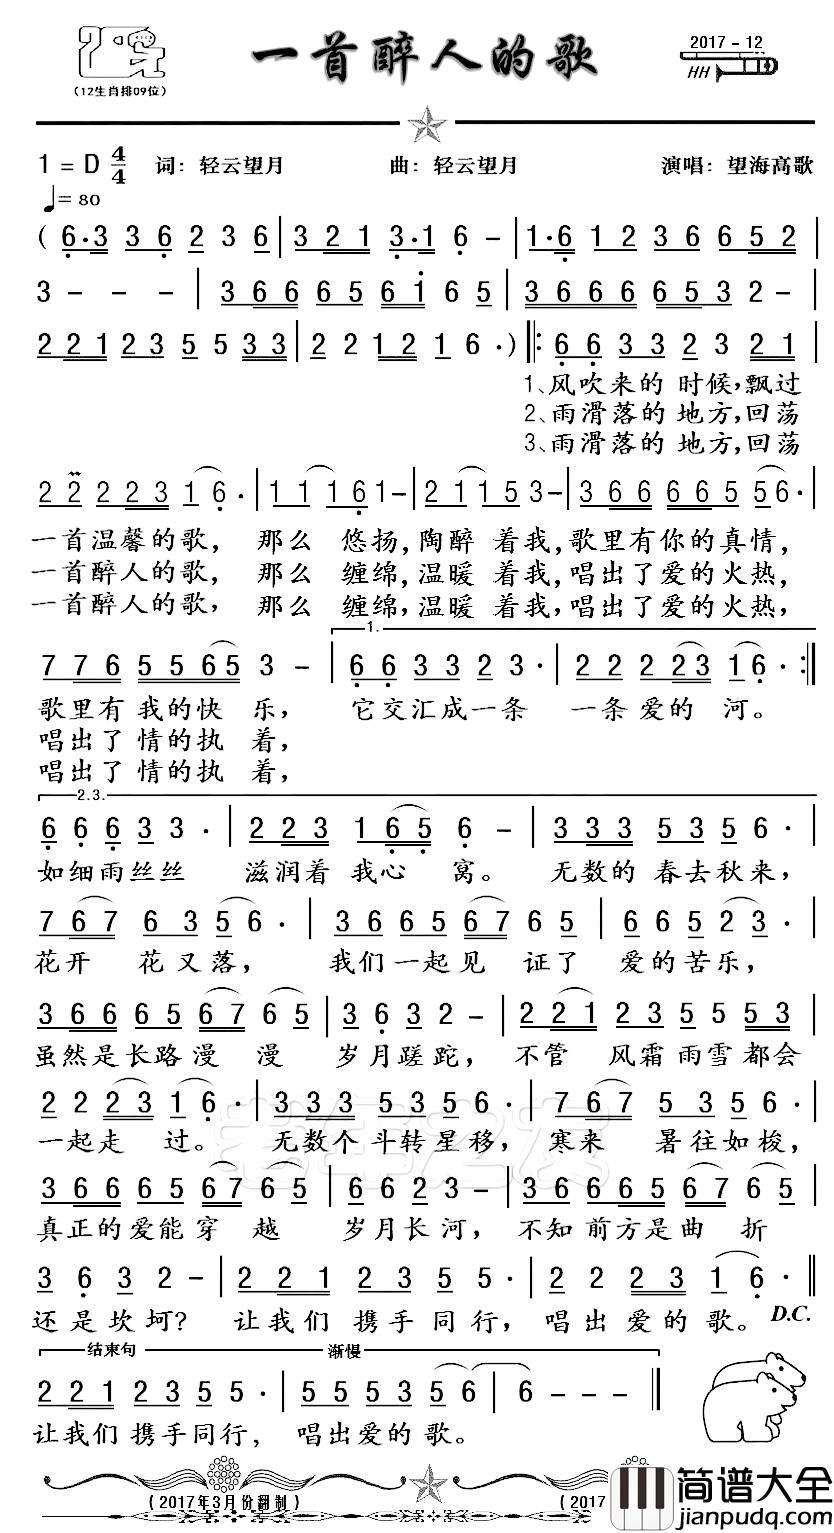 一首醉人的歌
(12生肖排09位)
2017-12
HH
1=D 4/4 词:轻云望月 曲:轻云望月 演唱:望海高歌
♩=80
( 6·3 3 6 2 3 6 | 3 2 1 3·1 6 - | 1·6 1 2 3 6 6 5 2 |
3 - - - | 3 6 6 6 5 6 1 6 5 | 3 6 6 6 6 5 3 2 - |
2 2 1 2 3 5 5 3 3 | 2 2 1 2 1 6 · ) ‖: 6 6 3 3 2 3 2 1 |
1、风吹来的 时候,飘过
2、雨滑落的 地方,回荡
3、雨滑落的 地方,回荡
2 2 2 2 3 1 6 · | 1 1 1 6 1 - | 2 1 1 5 3 - | 3 6 6 6 6 5 5 6 · |
一首温馨的歌, 那么 悠扬,陶醉 着我,歌里有你的真情,
一首醉人的歌, 那么 缠绵,温暖 着我,唱出了爱的火热,
一首醉人的歌, 那么 缠绵,温暖 着我,唱出了爱的火热,
1.
7 7 6 5 5 6 5 3 - | 6 6 3 3 2 3 · | 2 2 2 2 3 1 6 · :‖
歌里有 我的快 乐, 它交汇成一条 一条 爱的 河。
唱出了 情的执 着,
唱出了 情的执 着,
2.3.
6 6 6 3 3 · | 2 2 3 1 6 5 6 - | 3 3 3 5 3 5 6 · |
如细雨丝丝 滋润着 我心 窝。 无数的 春去秋来,
7 6 7 6 3 5 6 · | 3 6 6 5 6 7 6 5 | 6 6 5 2 3 · |
花开 花又落, 我们一起见 证了 爱的苦乐,
3 6 6 6 5 6 7 6 5 | 3 6 3 2 - | 2 2 1 2 3 5 5 5 3 |
虽然是长路漫 漫 岁月蹉跎, 不管 风霜雨雪都会
2 2 2 3 1 6 · | 3 3 3 5 3 5 6 · | 7 6 7 5 3 5 6 · |
一起走 过。 无数个 斗转星移, 寒来 暑往如梭,
3 6 6 6 5 6 7 6 5 | 6 6 2 3 - | 3 6 6 6 5 6 7 6 5 |
真正的爱能穿 越 岁月长河, 不知前方是曲 折
3 6 3 2 - | 2 2 1 2 3 5 5 · | 2 2 2 3 1 6 · ‖
还是坎坷? 让我们 携手同行, 唱出 爱的 歌。 D.C.
结束句 渐慢
2 2 1 2 3 5 5 · | 5 5 5 3 5 6 | 6 - - - ‖
让我们 携手同行, 唱出爱的 歌。
(2017年3月份翻制) (2017
简谱大全
jianpudq.com